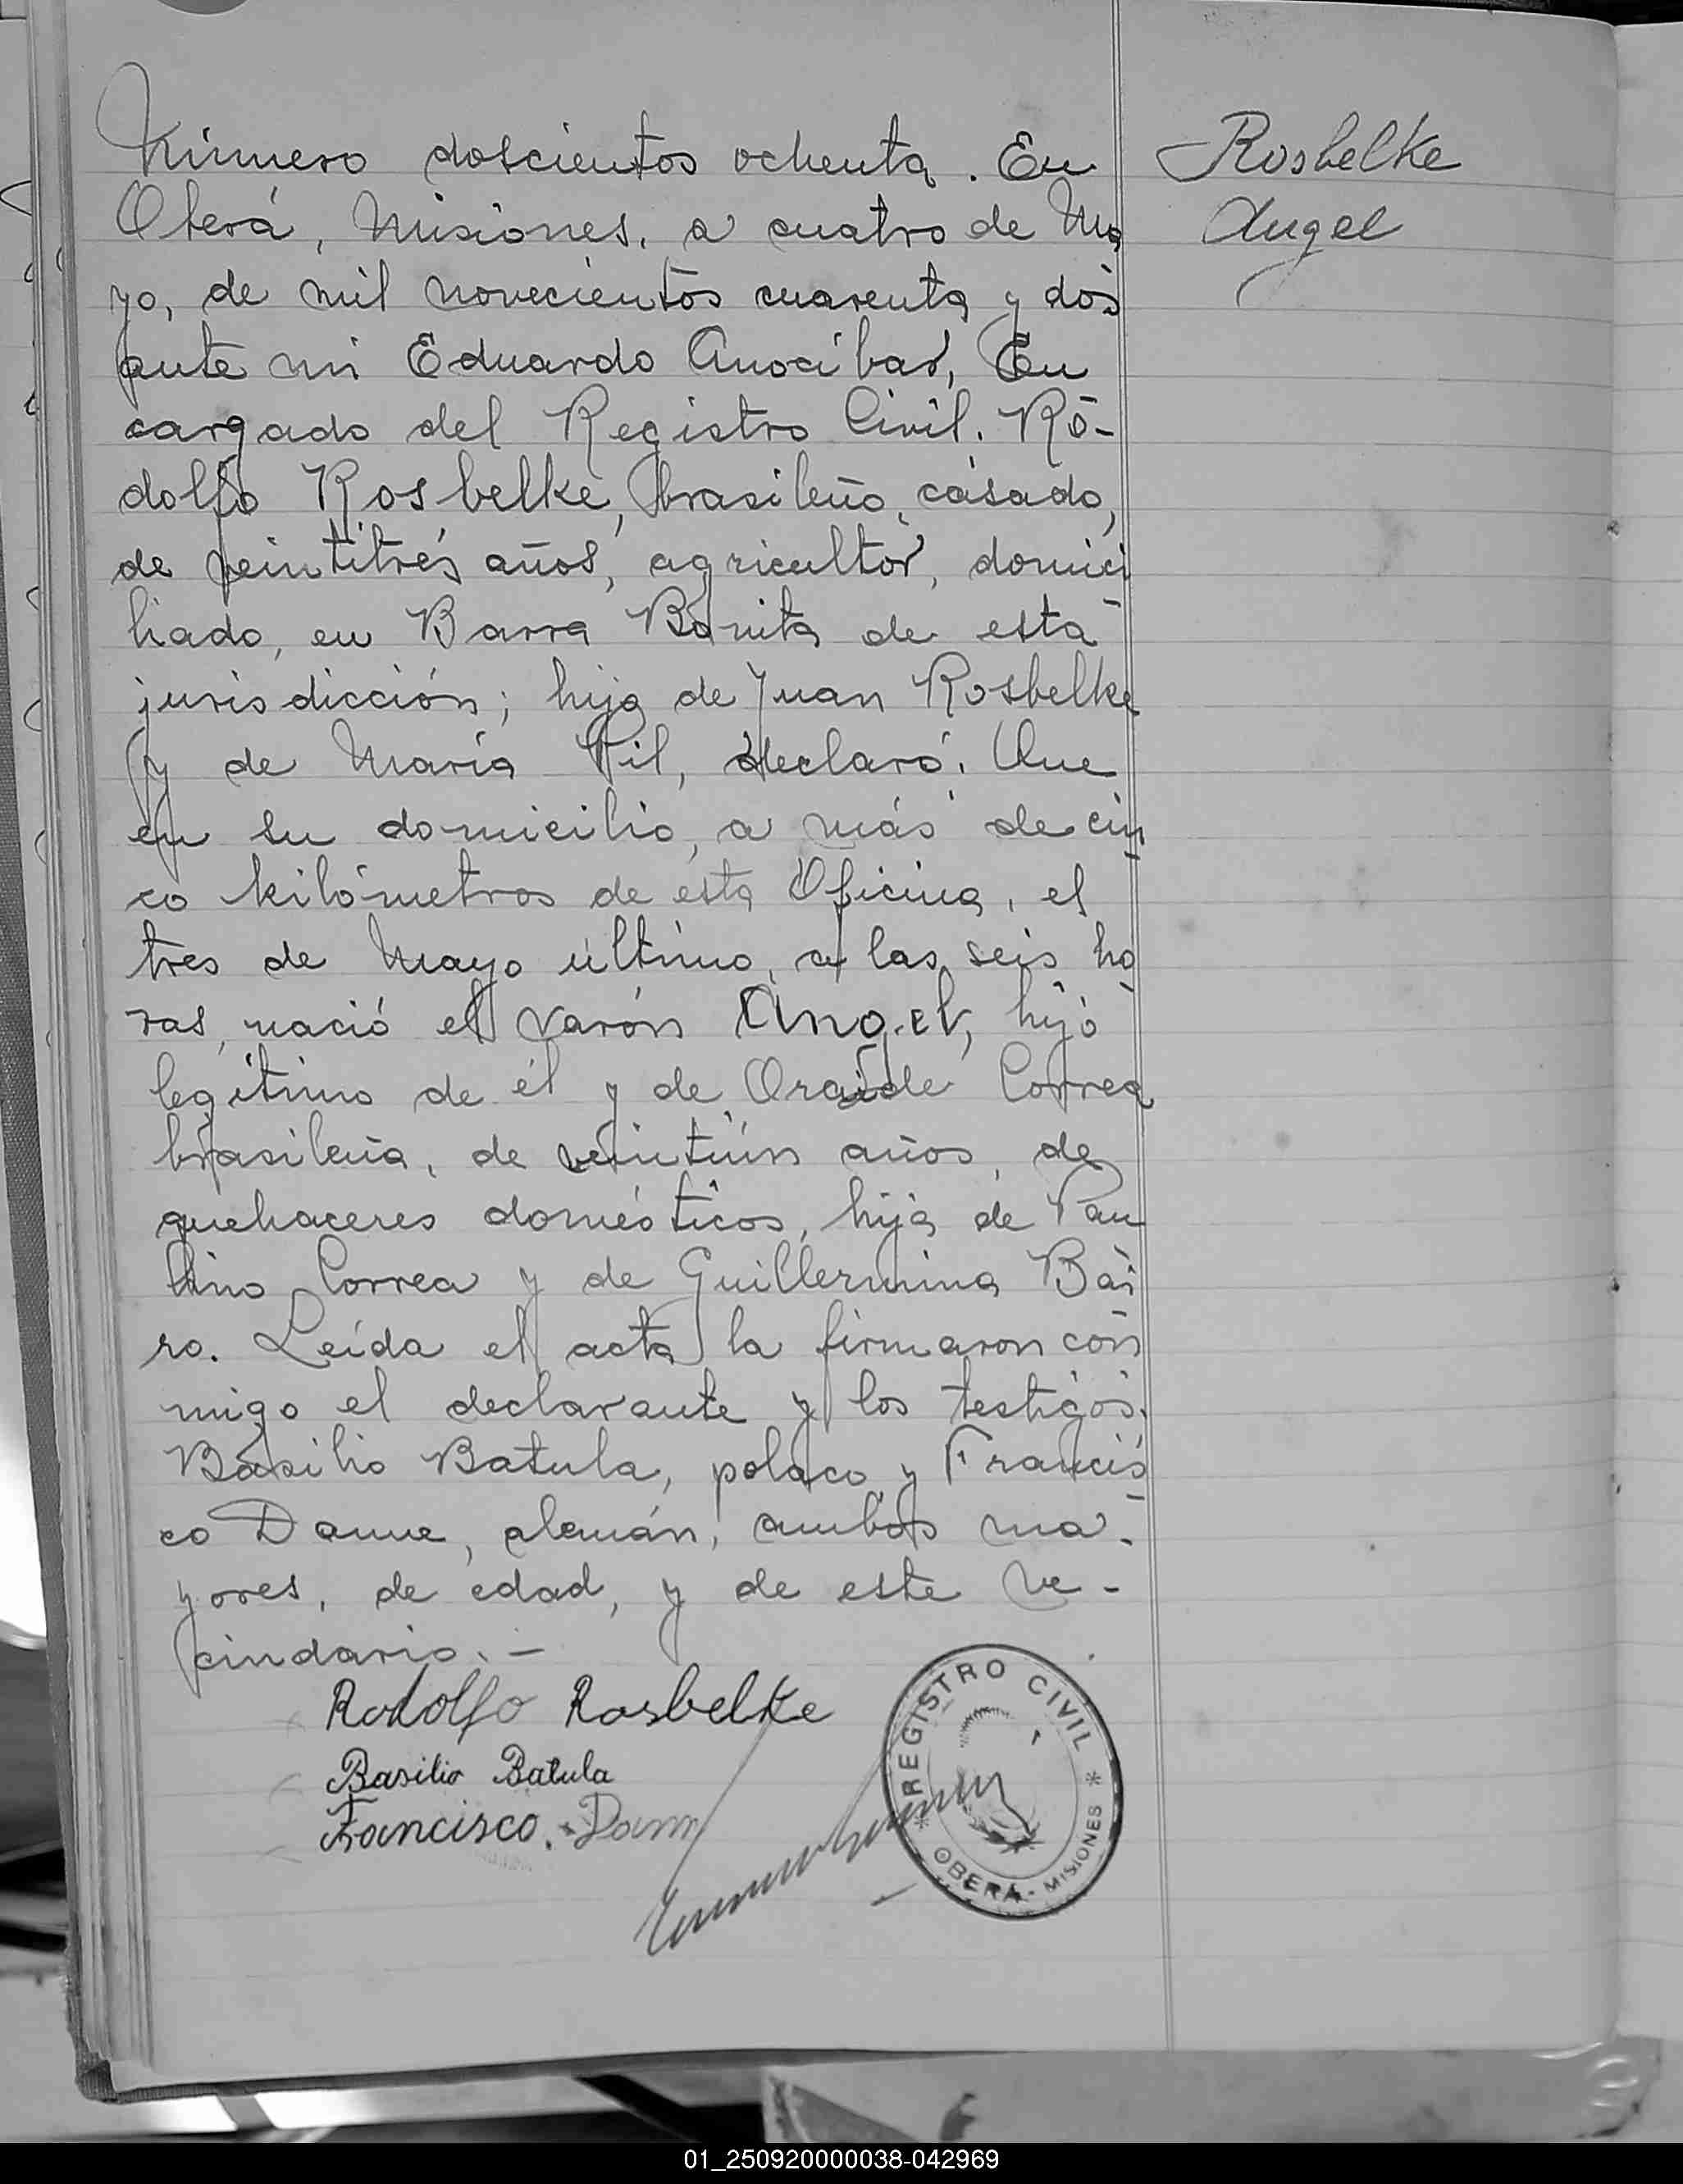 Número doscientos ochenta. En
Oberá, Misiones, a cuatro de Ma
yo, de mil novecientos cuarenta y dos
ante mi Eduardo Anocibar, En
cargado del Registro Civil. Ro-
dolfo Rosbelke, brasileño, casado,
de veintitrés años, agricultor, domici
liado, en Barra Bonita de esta
jurisdicción; hijo de Juan Rosbelke
y de María Pil, declaró: Que
en su domicilio, a más de cin
co kilómetros de esta Oficina, el
tres de Mayo último, a las seis ho
ras, nació el varón Angel, hijo
legítimo de él y de Oraide Correa
brasileña, de veintiún años, de
quehaceres domésticos, hija de Pau
lino Correa y de Guillermina Bai
ro. Leída el acta la firmaron con
migo el declarante y los testigos.
Basilio Batula, polaco y Francis
co Danne, alemán, ambos ma-
yores, de edad, y de este ve-
cindario.-
Rosbelke
Angel
Rodolfo Rosbelke
Basilio Batula
Francisco. Dann
REGISTRO CIVIL
* OBERÁ - MISIONES *
01_250920000038-042969